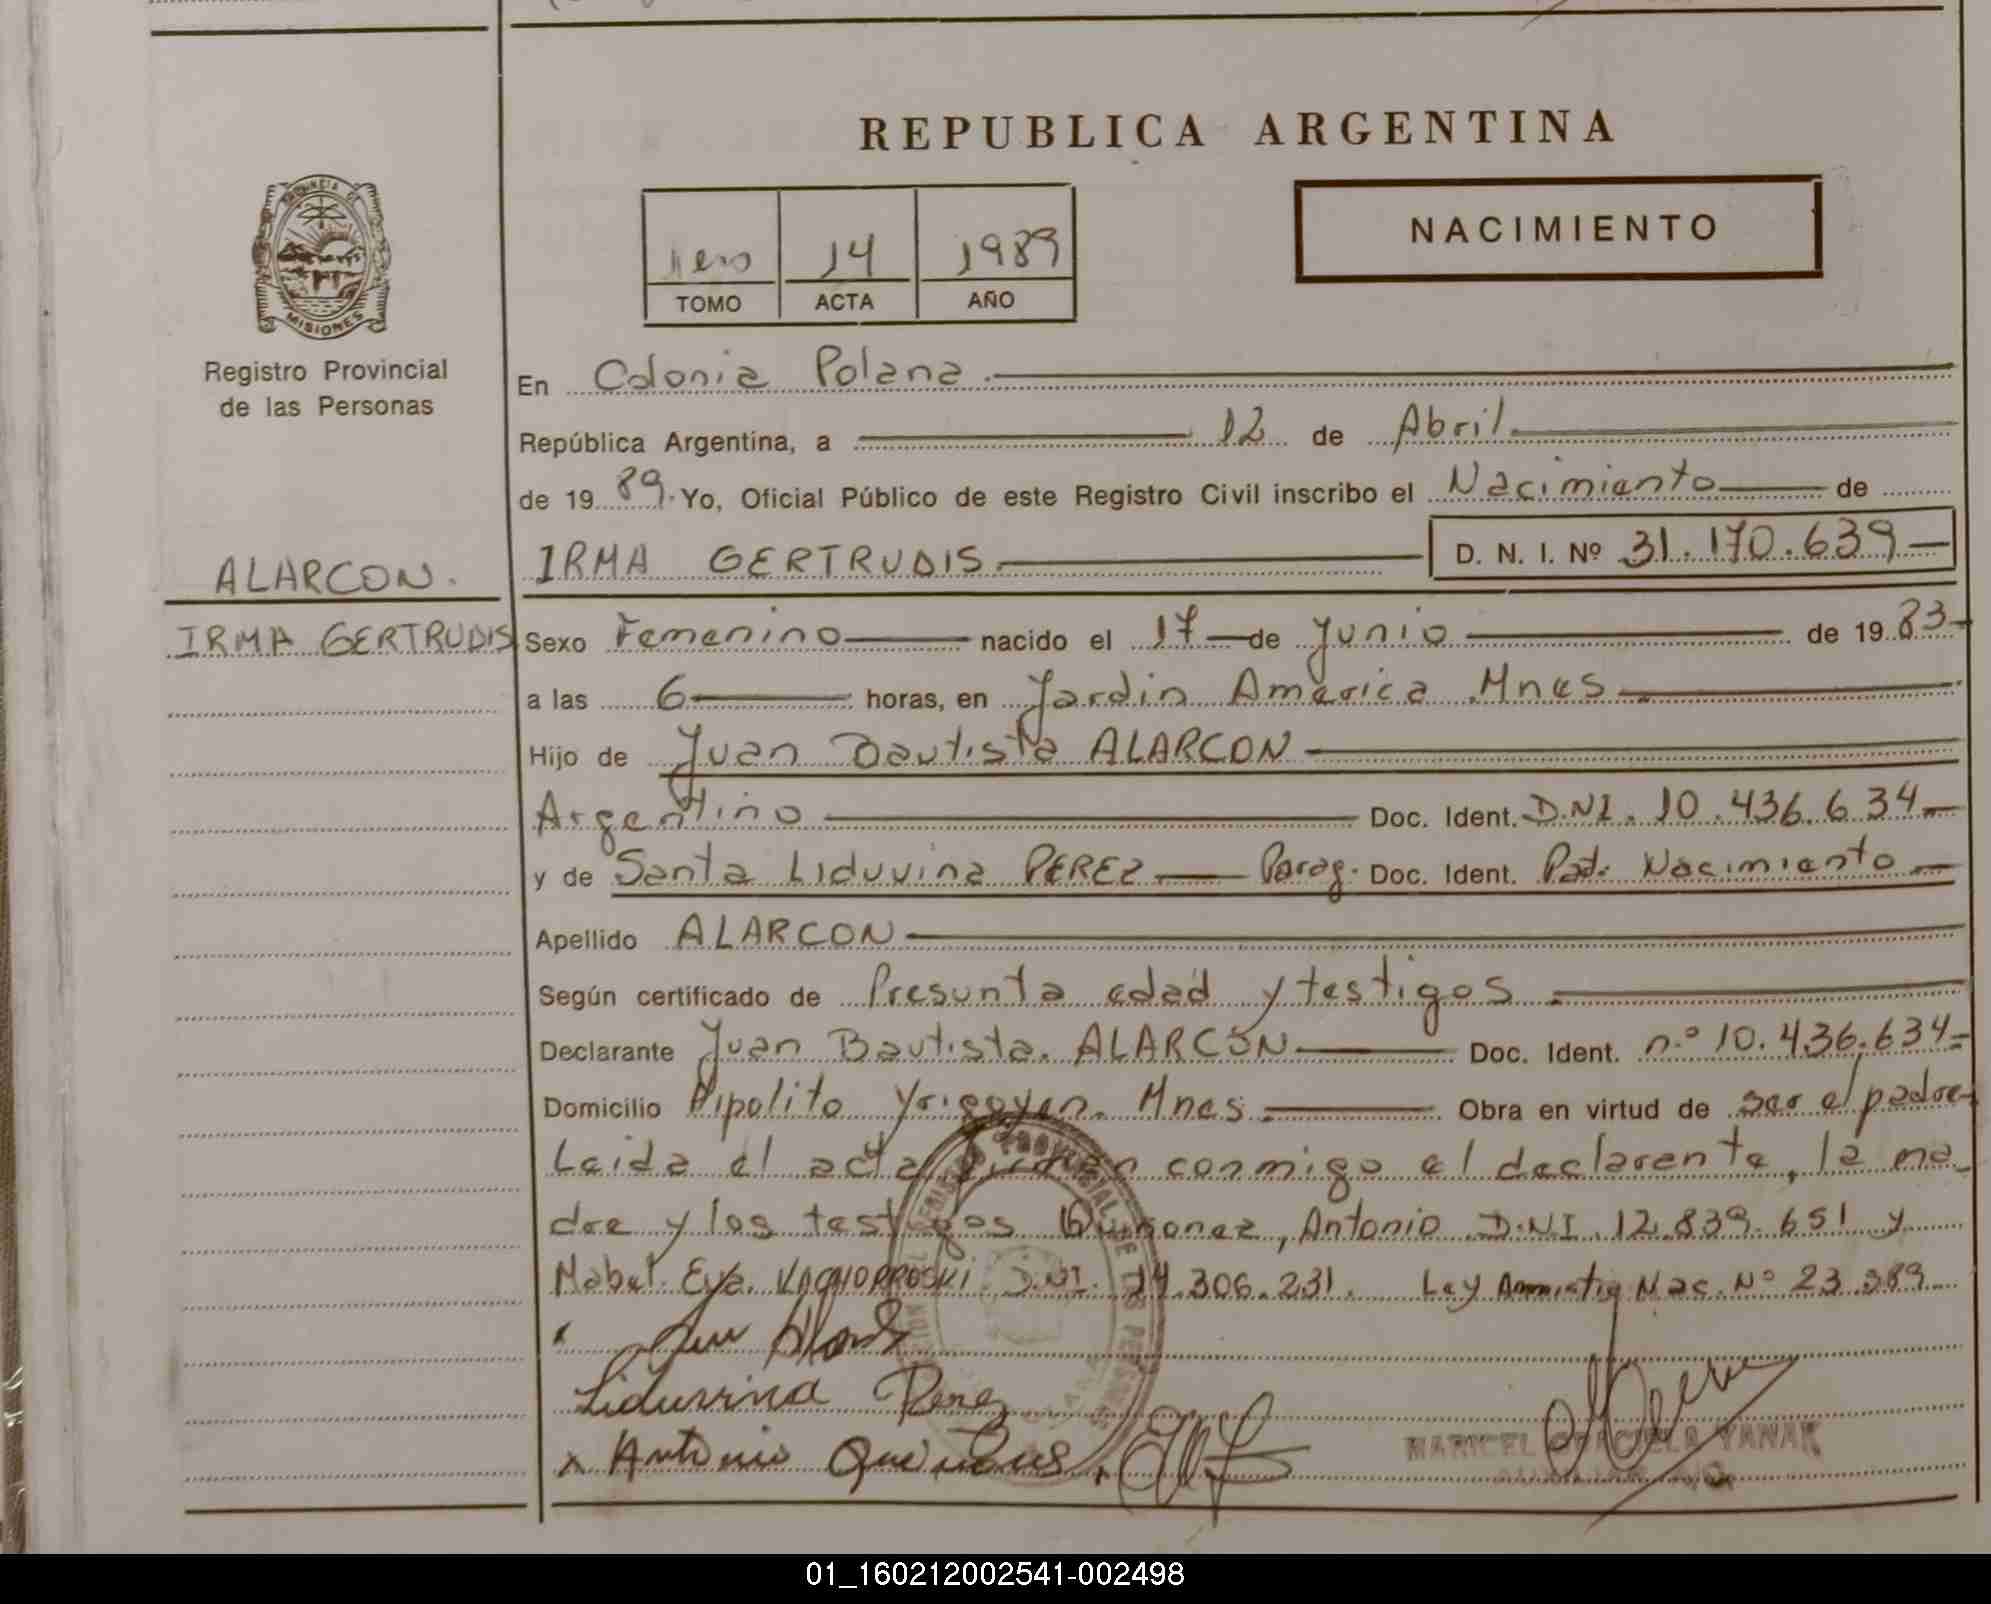 REPUBLICA ARGENTINA
NACIMIENTO
1ero 14 1989
TOMO ACTA AÑO
PROVINCIA DE
MISIONES
Registro Provincial
de las Personas
En Colonia Polana.
República Argentina, a 12 de Abril
de 1989. Yo, Oficial Público de este Registro Civil inscribo el Nacimiento de
ALARCON.
IRMA GERTRUDIS
IRMA GERTRUDIS D. N. I. Nº 31.170.639
Sexo Femenino nacido el 17 de Junio de 1983
a las 6 horas, en Jardin America Mnes
Hijo de Juan Bautista ALARCON
Argentino Doc. Ident. D.N.I. 10.436.634
y de Santa Liduvina PEREZ Parag. Doc. Ident. Pat. Nacimiento
Apellido ALARCON
Según certificado de Presunta edad y testigos.
Declarante Juan Bautista ALARCON Doc. Ident. n.º 10.436.634
Domicilio Hipolito Yrigoyen. Mnes Obra en virtud de ser el padre
Leida el acta firman conmigo el declarante, la ma_
dre y los testigos Quiñonez, Antonio D.N.I. 12.839.651 y
Mabel Eva D.N.I. 14.306.231. Ley Amnistia Nac. Nº 23.389
REGISTRO PROVINCIAL DE LAS PERSONAS
Liduvina Perez
x Antonio Quiñones
MARICEL GRACIELA YANAK
01_160212002541-002498